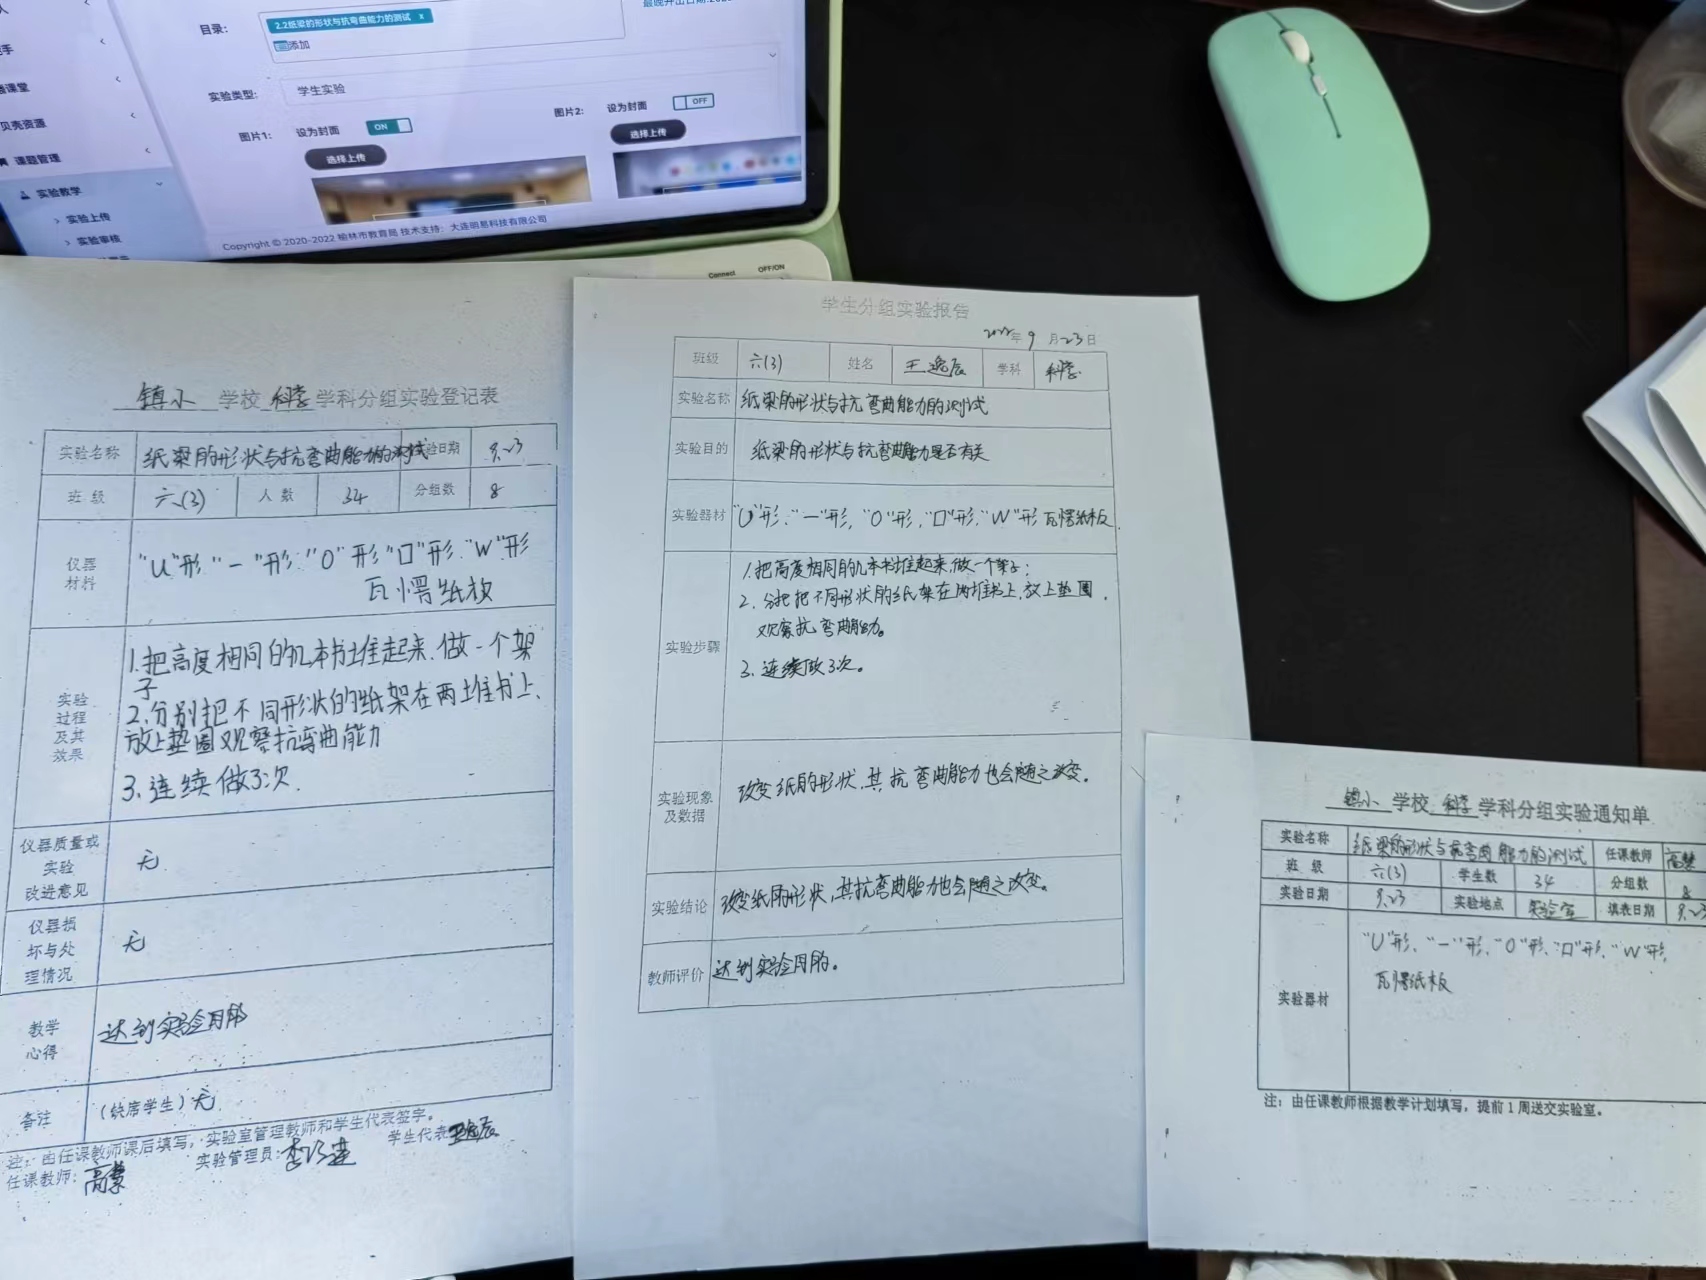 目录:
2.2纸梁的形状与抗弯曲能力的测试 x
添加
实验类型:
学生实验
图片1:
设为封面
ON
选择上传
图片2:
设为封面
OFF
选择上传
课堂
贝壳资源
课题管理
实验教学
实验上传
实验审核
Copyright © 2020-2022 榆林市教育局 技术支持: 大连明易科技有限公司
Connect
OFF/ON
镇小 学校 科学 学科分组实验登记表
实验名称 纸梁的形状与抗弯曲能力的测试 验日期 9.23
班级 六(3) 人数 34 分组数 8
仪器
材料
"U"形 "一"形 "O"形 "口"形 "W"形
瓦愣纸板
实验
过程
及其
效果
1.把高度相同的几本书堆起来.做一个架
子
2.分别把不同形状的纸架在两堆书上、
放上垫圈观察抗弯曲能力
3.连续做3次.
仪器质量或
实验
改进意见
无
仪器损
坏与处
理情况
无
教学
心得
达到实验目的
备注 (缺席学生) 无
注: 由任课教师课后填写, 实验室管理教师和学生代表签字。
任课教师: 高慧 实验管理员: 学生代表 王逸辰
学生分组实验报告
2022年9月23日
班级 六(3) 姓名 王逸辰 学科 科学
实验名称 纸梁的形状与抗弯曲能力的测试
实验目的 纸梁的形状与抗弯曲能力是否有关
实验器材 "U"形、"一"形, "O"形, "口"形, "W"形 瓦愣纸板.
实验步骤
1.把高度相同的几本书堆起来.做一个架子;
2.分把把不同形状的纸架在两堆书上.放上垫圈.
观察抗弯曲能力。
3.连续做3次。
实验现象
及数据
改变纸的形状.其抗弯曲能力也会随之改变.
实验结论 改变纸的形状,其抗弯曲能力也会随之改变。
教师评价 达到实验目的。
镇小 学校 科学 学科分组实验通知单
实验名称 纸梁的形状与抗弯曲能力的测试 任课教师 高慧
班级 六(3) 学生数 34 分组数 8
实验日期 9.23 实验地点 实验室 填表日期 9.23
实验器材
"U"形、"一"形、"O"形、"口"形、"W"形,
瓦愣纸板
注: 由任课教师根据教学计划填写, 提前1周送交实验室。